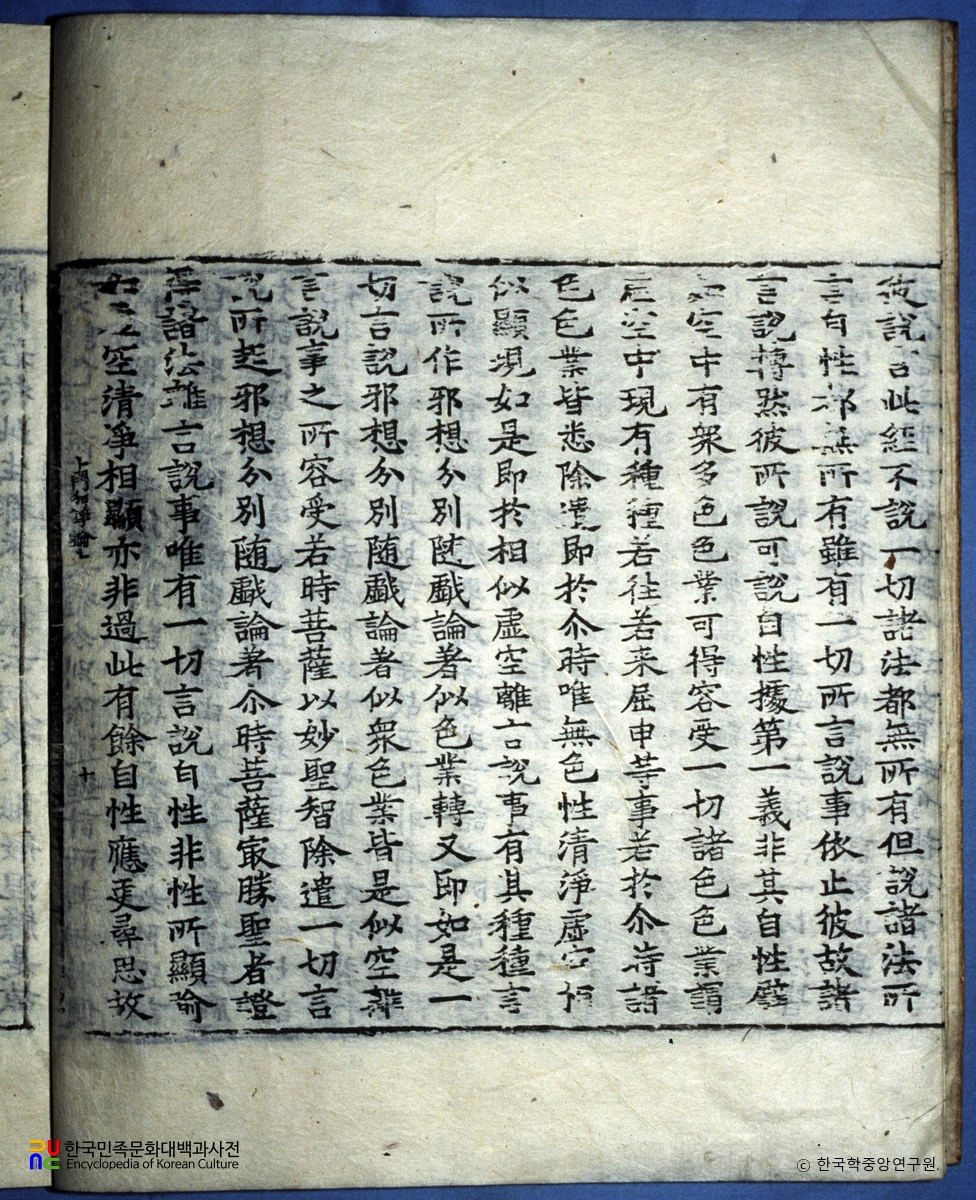 彼說言此經不說一切諸法都無所有但說諸法所
言自性都無所有雖有一切所言說事依止彼故諸
言說轉然彼所說可說自性據第一義非其自性譬
如空中有衆多色色業可得容受一切諸色色業謂
虛空中現有種種若往若来屈申等事若於尒時諸
色色業皆悉除遣即於尒時唯無色性清淨虛空相
似顯現如是即於相似虛空離言說事有其種種言
說所作邪想分別随戱論著似色業轉又即如是一
切言說邪想分別随戱論著似衆色業皆是似空離
言說事之所容受若時菩薩以妙聖智除遣一切言
說所起邪想分別随戱論著尒時菩薩冣勝聖者證
得諸法離言說事唯有一切言說自性非性所顯喻
如虛空清淨相顯亦非過此有餘自性應更尋思故
十門和諍論上
十
한국민족문화대백과사전
Encyclopedia of Korean Culture
ⓒ 한국학중앙연구원.